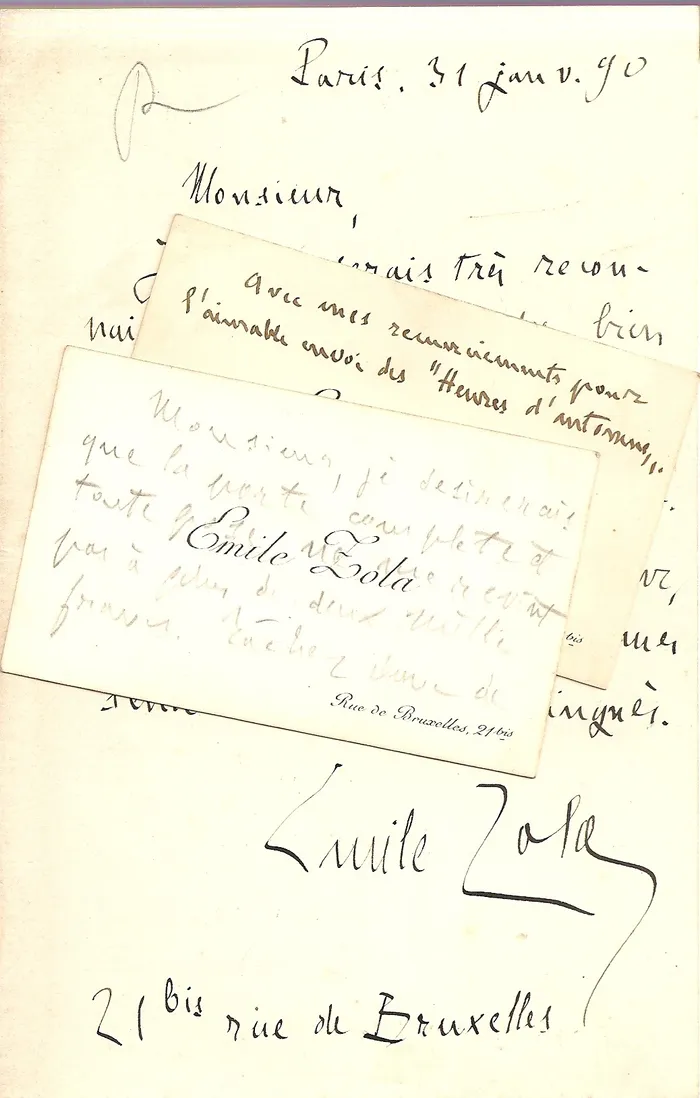 Paris. 31 janv. 90
Monsieur,
serais très recon-
bien
nai
Avec mes remerciements pour
l'aimable envoi des "Heures d'automne".
Monsieur, je désirerais
que la porte complète et
toute posée ne me revînt
pas à plus de deux mille
francs. Tâchez donc de
Emile Zola
Rue de Bruxelles, 21 bis
bis
mes
ingués.
Emile Zola
21 bis rue de Bruxelles